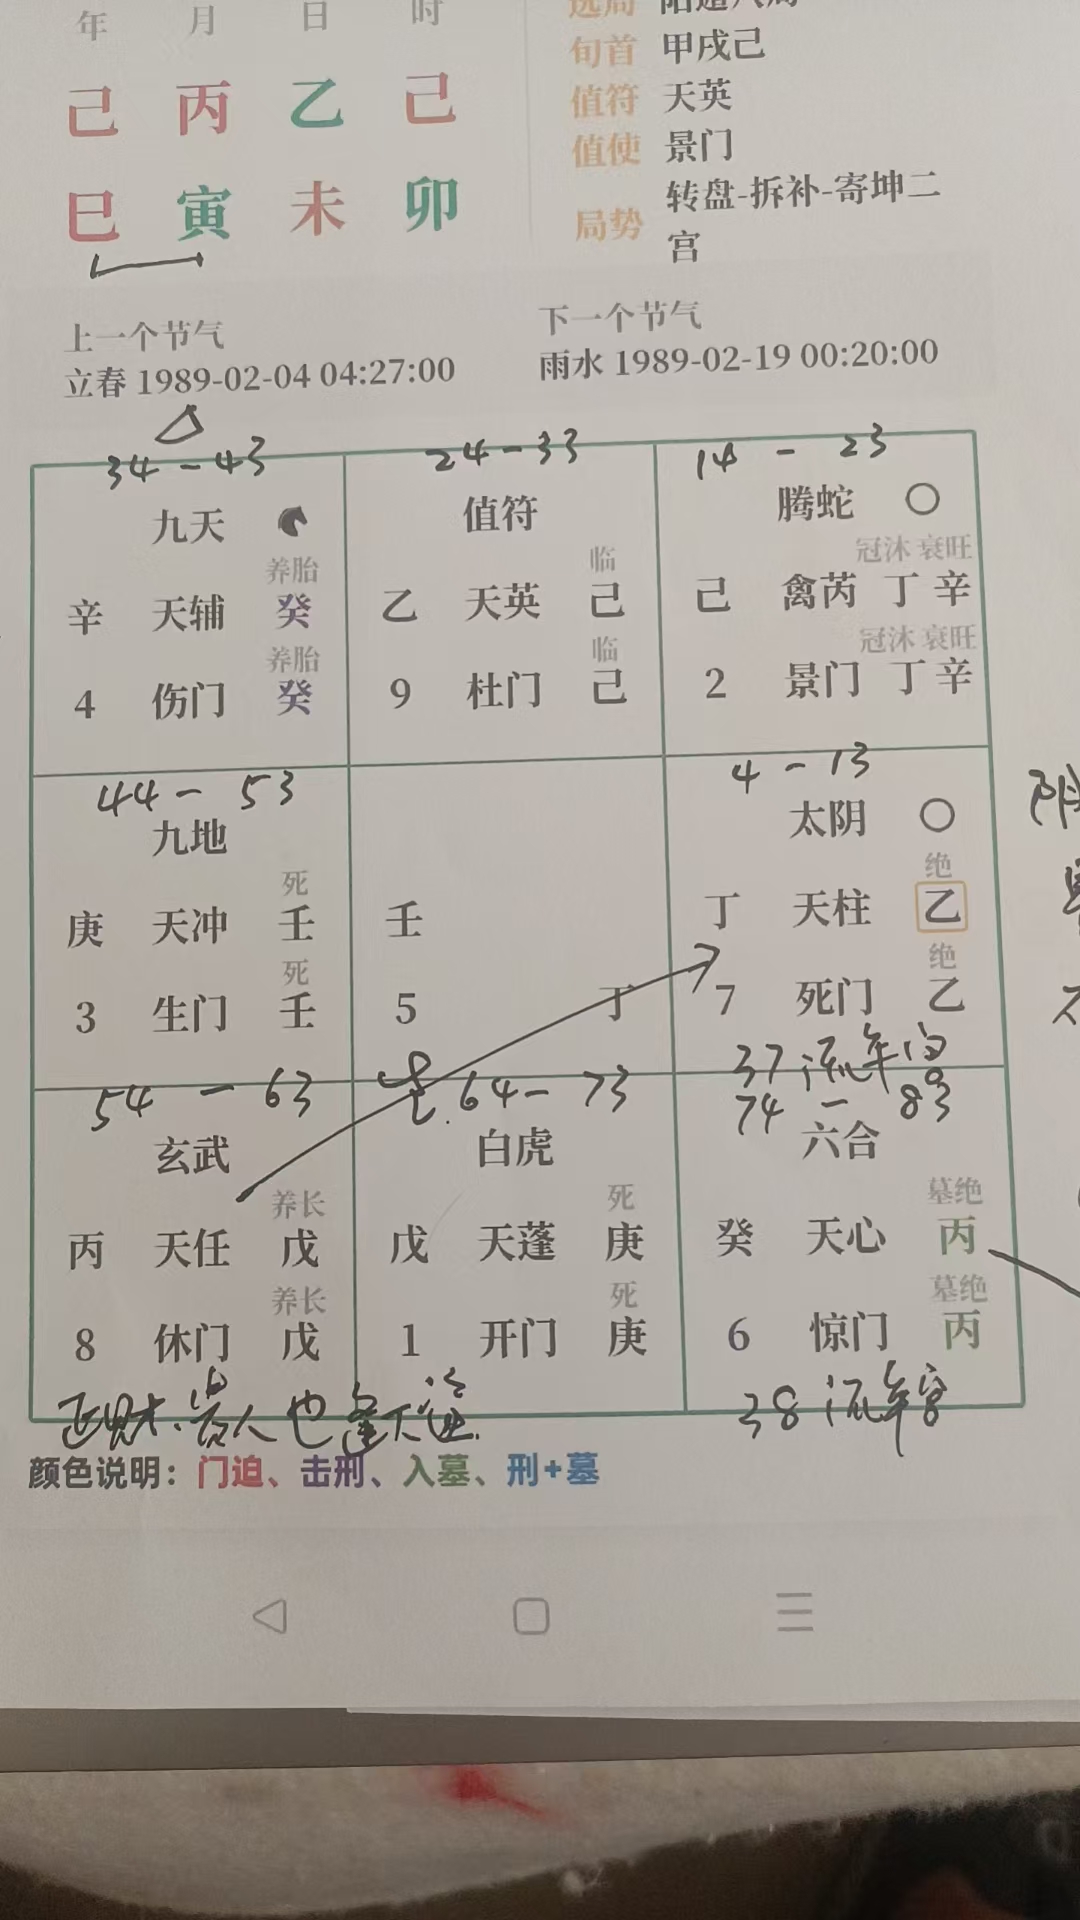 年 月 日 时
己 丙 乙 己
巳 寅 未 卯
旬首 甲戌己
值符 天英
值使 景门
局势 转盘-拆补-寄坤二宫
上一个节气
立春 1989-02-04 04:27:00
下一个节气
雨水 1989-02-19 00:20:00
34-43
九天
养胎
辛 天辅 癸
养胎
4 伤门 癸
24-33
值符
临
乙 天英 己
临
9 杜门 己
14-23
腾蛇 〇
冠沐 衰旺
己 禽芮 丁 辛
冠沐 衰旺
2 景门 丁 辛
44-53
九地
死
庚 天冲 壬
死
3 生门 壬
壬
5 丁
4-13
太阴 〇
绝
丁 天柱 乙
绝
7 死门 乙
37流年宫
54-63
玄武
养长
丙 天任 戊
养长
8 休门 戊
64-73
白虎
死
戊 天蓬 庚
死
1 开门 庚
74-83
六合
墓绝
癸 天心 丙
墓绝
6 惊门 丙
38流年宫
颜色说明：门迫、击刑、入墓、刑+墓